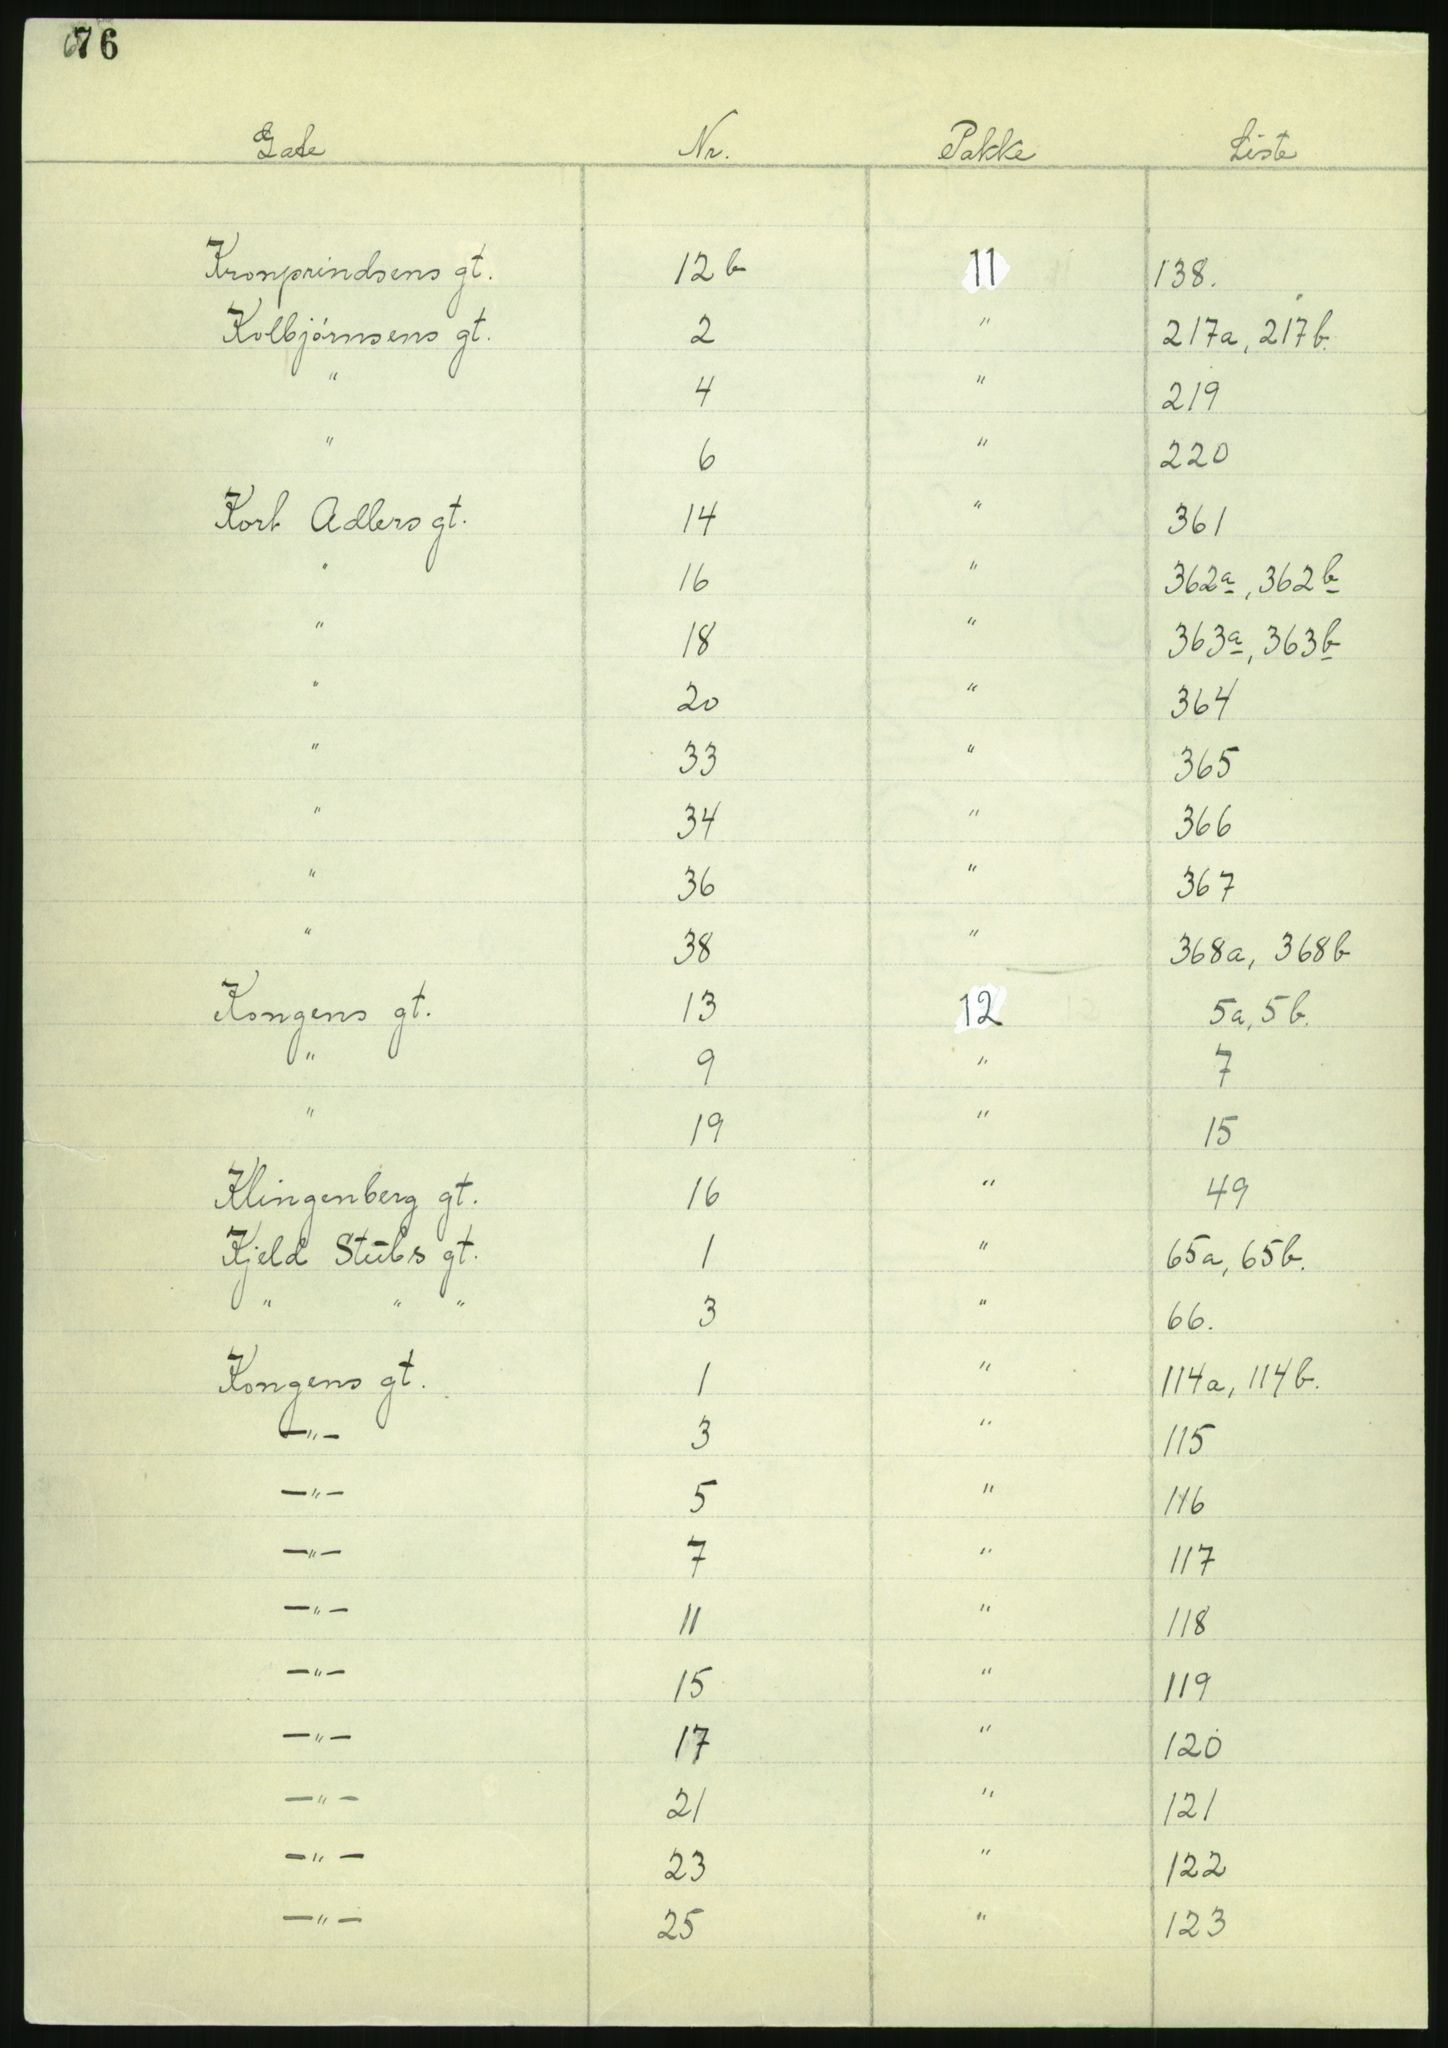 76
Gate Nr. Pakke Liste
Kronprindsens gt. 12b 11 138.
Kolbjørnsens gt. 2 " 217a, 217b.
" 4 " 219
" 6 " 220
Kort Adlers gt. 14 " 361
" 16 " 362a, 362b
" 18 " 363a, 363b
" 20 " 364
" 33 " 365
" 34 " 366
" 36 " 367
" 38 " 368a, 368b
Kongens gt. 13 12 5a, 5b.
" 9 " 7
" 19 " 15
Klingenberg gt. 16 " 49
Kjeld Stubs gt. 1 " 65a, 65b.
" " " 3 " 66.
Kongens gt. 1 " 114a, 114b.
—"— 3 " 115
—"— 5 " 116
—"— 7 " 117
—"— 11 " 118
—"— 15 " 119
—"— 17 " 120
—"— 21 " 121
—"— 23 " 122
—"— 25 " 123